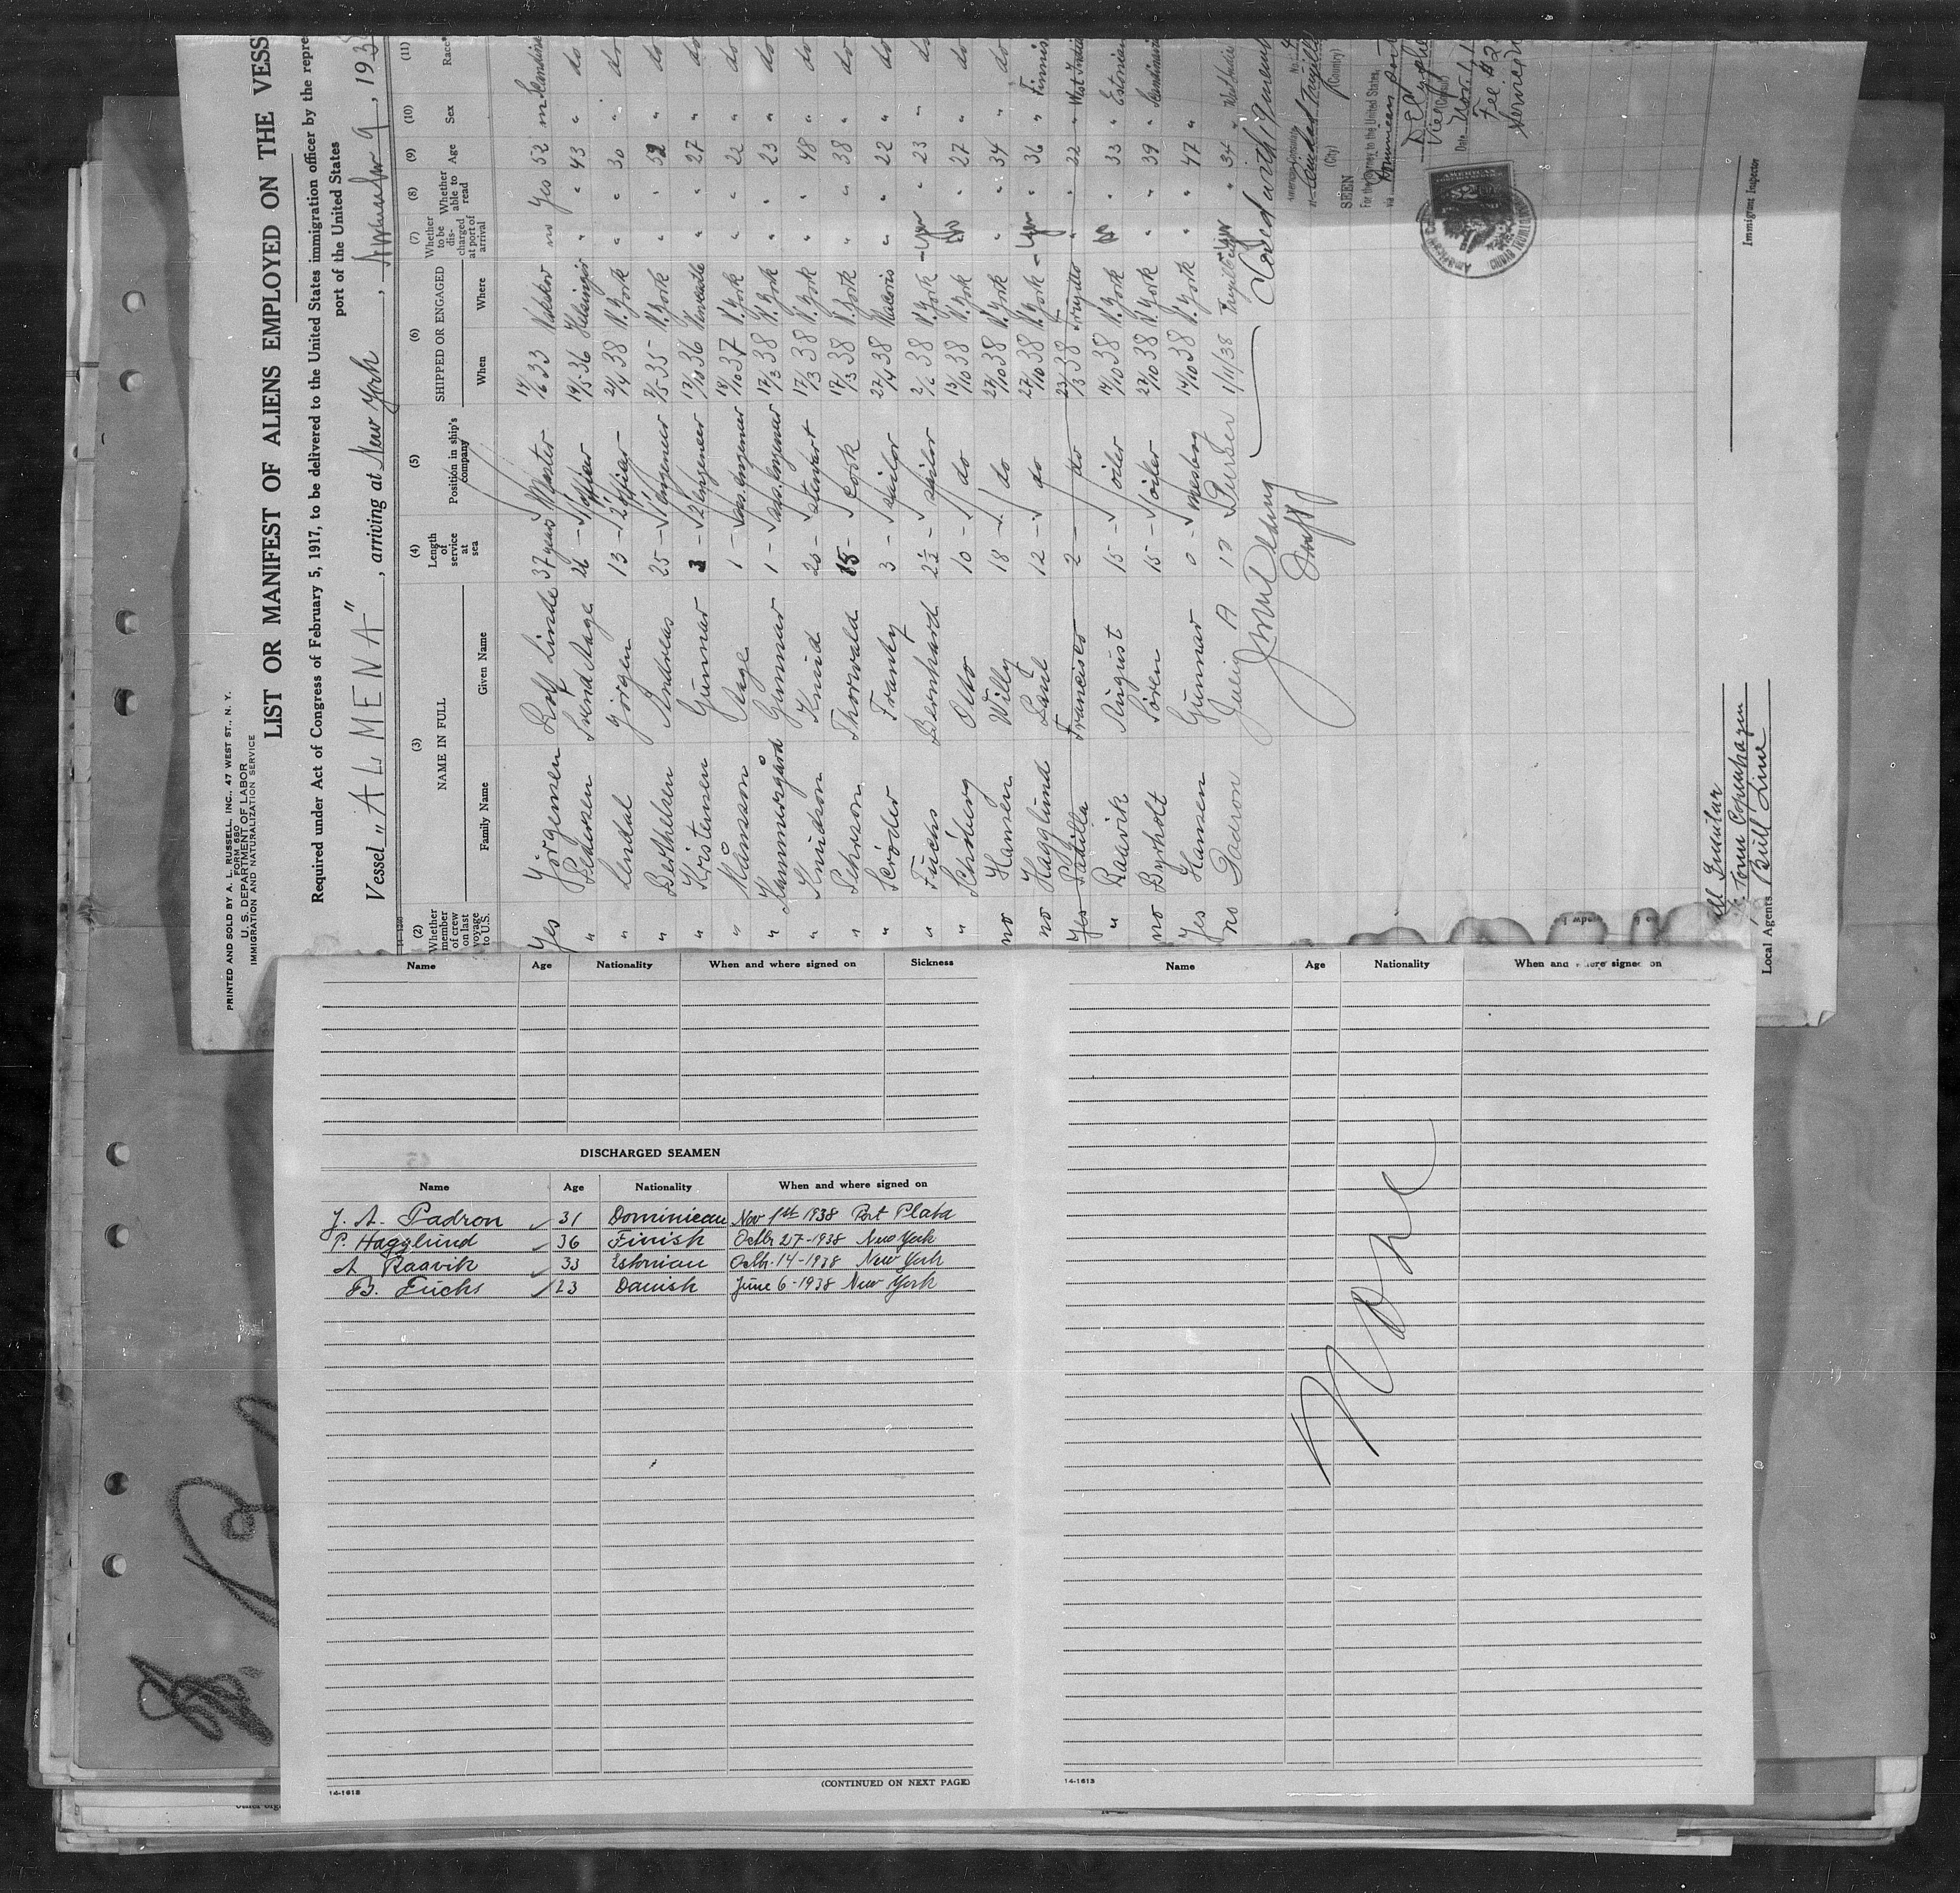 PRINTED AND SOLD BY A. L. RUSSELL, INC., 47 WEST ST., N. Y.
FORM 680
U. S. DEPARTMENT OF LABOR
IMMIGRATION AND NATURALIZATION SERVICE
LIST OR MANIFEST OF ALIENS EMPLOYED ON THE VESS
Required under Act of Congress of February 5, 1917, to be delivered to the United States immigration officer by the repre
port of the United States
Vessel "ALMENA", arriving at New York, November 9, 193
(2) (3) (4) (5) (6) (7) (8) (9) (10) (11)
Whether member of crew on last voyage to U.S. NAME IN FULL Length of service at sea Position in ship's company SHIPPED OR ENGAGED Whether to be discharged at port of arrival Whether able to read Age Sex Race*
Family Name Given Name When Where
Yes Jörgensen Rolf Linde 37 years Master 14/6 33 no Yes 52 m
" Pedersen Svend Aage 26 - 19/5 36 Helsingör " " 43 " do
" Lendal Jörgen 13 - 21/4 38 N. York " " 30 " do
" Berthelsen Andreas 25 - 1 engeneer 7/5 35 N. York " " 52 " do
" Kristensen Gunnar 3 - 2 engeneer 13/10 36 " " 27 " do
" Månsson Aage 1 - ass. engeneer 18/10 37 N. York " " 22 " do
" Kammersgård Gunnar 1 - ass. engeneer 17/3 38 N. York " " 23 " do
" Knudson Knud 20 - stewart 17/3 38 N. York " " 48 " do
" Pehrson Thorvald 15 - cook 17/3 38 N. York " " 38 " do
" Scröder Frantz 3 - sailor 27/4 38 Macoris " " 22 " do
" Fuchs Bernhard 2½ - sailor 2/6 38 N. York - Yes " 23 " do
" Schöberg Otto 10 - do 13/10 38 N. York no " 27 " do
no Hansen Willy 18 - do 27/10 38 N. York " " 34 " do
no Hagglund Paul 12 - do 27/10 38 N. York - Yes " 36 " Finnis
Yes Padilla Francisco 2 - do 23/3 38 Trujillo " " 22 " West India
" Raavik August 15 - oiler 14/10 38 N. York no " 33 " Estonien
no Byrholt Sören 15 - oiler 27/10 38 N. York " " 39 " Scandinavia
Yes Hansen Gunnar 0 - mesboy 14/10 38 N. York " " 47 "
no Padron Julio A 12 Purser 1/11/38 Yes " 34 " West India
Closed with signature
American Consulate
No.
at Ciudad Trujillo
(City) (Country)
SEEN
For the journey to the United States,
via Dominican port
Vice Consul
Date Nov. 1
Fee $2
AMERICAN
Immigrant Inspector
Copenhagen
Local Agents Bull Line
Name Age Nationality When and where signed on Sickness
DISCHARGED SEAMEN
Name Age Nationality When and where signed on
J. A. Padron 31 Dominican Nov 1st 1938 Port Plata
P. Hagglund 36 Finish Octbr 27-1938 New York
A Raavik 33 Estonian Octb. 14-1938 New York
B. Fuchs 23 Danish June 6-1938 New York
(CONTINUED ON NEXT PAGE)
14-1613
Name Age Nationality When and where signed on
None
14-1613